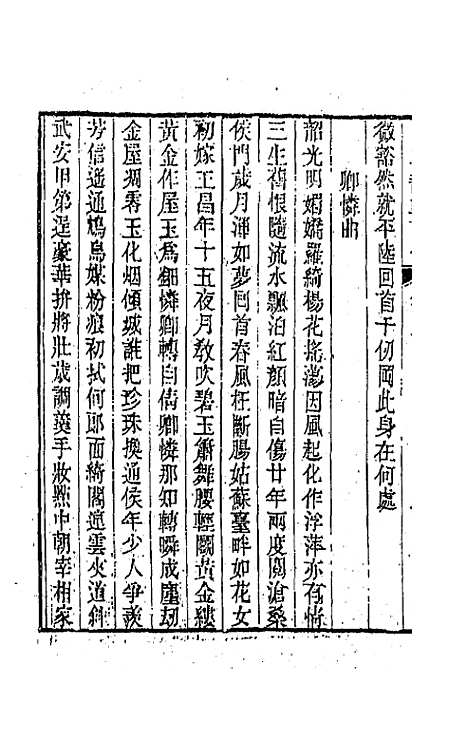 微豁然就平陸回首千仞岡此身在何處
卿憐曲
韶光明媚嬌羅綺楊花搖蕩因風起化作浮萍亦有情
三生舊恨隨流水飄泊紅顏暗自傷廿年兩度閱滄桑
侯門歲月渾如夢回首春風枉斷腸姑蘇臺畔如花女
初嫁王昌年十五夜月教吹碧玉簫舞腰輕鬬黃金縷
黃金作屋玉為鈿憐卿轉自倩卿憐那知轉瞬成塵劫
金屋凋零玉化烟傾城誰把珍珠換通侯年少人爭羨
芳信遙通鴆鳥媒粉痕初拭何郎面綺閣連雲夾道斜
武安甲第逞豪華拚將壯歲調羹手妝點中朝宰相家